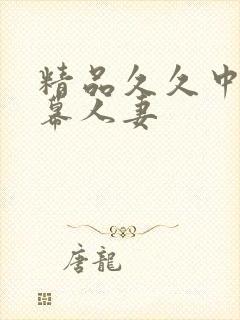 精品久久中
幕人妻
唐龍